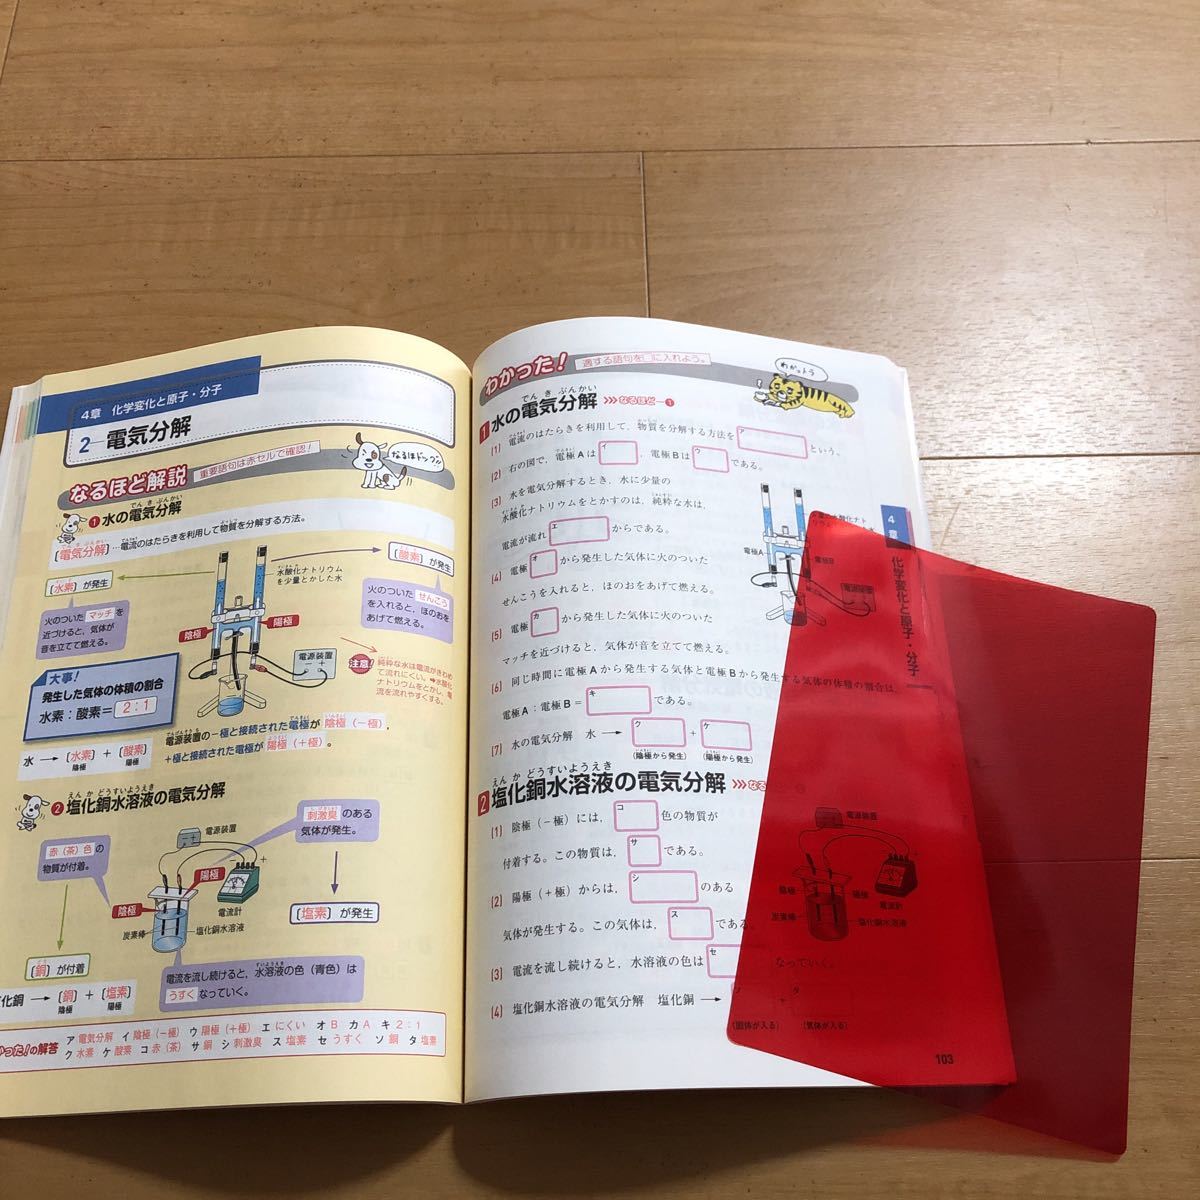 4章 化学変化と原子・分子
2 電気分解
なるほど解説 重要語句は赤セルで確認!
なるほドッグ!!
❶ 水の電気分解
でん き ぶんかい
〔電気分解〕…電流のはたらきを利用して物質を分解する方法。
〔水素〕が発生
火のついたマッチを
近づけると、気体が
音を立てて燃える。
水酸化ナトリウム
を少量とかした水
〔酸素〕が発生
火のついたせんこう
を入れると、ほのおを
あげて燃える。
陰極
陽極
電源装置
− +
注意!
純粋な水は電流がきわめ
て流れにくい。➡水酸化
ナトリウムをとかし、電
流を流れやすくする。
大事!
発生した気体の体積の割合
水素:酸素= 2:1
電源装置の−極と接続された電極が 陰極(−極)、
+極と接続された電極が 陽極(+極)。
水 → 〔水素〕 + 〔酸素〕
陰極 陽極
❷ 塩化銅水溶液の電気分解
えん か どうすいようえき
赤(茶)色の
物質が付着。
電源装置
− +
刺激臭のある
気体が発生。
陽極
陰極
電流計
炭素棒
塩化銅水溶液
〔塩素〕が発生
〔銅〕が付着
電流を流し続けると、水溶液の色(青色)は
うすくなっていく。
化銅 → 〔銅〕 + 〔塩素〕
陰極 陽極
かった!の解答 ア 電気分解 イ 陰極(−極) ウ 陽極(+極) エ にくい オ B カ A キ 2:1
ク 水素 ケ 酸素 コ 赤(茶) サ 銅 シ 刺激臭 ス 塩素 セ うすく ソ 銅 タ 塩素
わかった! 適する語句を□に入れよう。
わかっトラ
でん き ぶんかい
1 水の電気分解 >>>なるほど−❶
(1) 電流のはたらきを利用して、物質を分解する方法を ア という。
(2) 右の図で、電極Aは イ 、電極Bは ウ である。
(3) 水を電気分解するとき、水に少量の
水酸化ナトリウムをとかすのは、純粋な水は、
電流が流れ エ からである。
(4) 電極 オ から発生した気体に火のついた
せんこうを入れると、ほのおをあげて燃える。
(5) 電極 カ から発生した気体に火のついた
マッチを近づけると、気体が音を立てて燃える。
(6) 同じ時間に電極Aから発生する気体と電極Bから発生する気体の体積の割合は、
電極A:電極B= キ である。
(7) 水の電気分解 水 → ク + ケ
(陰極から発生) (陽極から発生)
電極A
電極B
電源装置
えん か どうすいようえき
2 塩化銅水溶液の電気分解 >>>なる
(1) 陰極(−極)には、 コ 色の物質が
付着する。この物質は、 サ である。
(2) 陽極(+極)からは、 シ のある
気体が発生する。この気体は、 ス である。
(3) 電流を流し続けると、水溶液の色は セ なっていく。
(4) 塩化銅水溶液の電気分解 塩化銅 → ソ + タ
(固体が入る) (気体が入る)
電源装置
陰極
陽極
電流計
炭素棒
塩化銅水溶液
4章
化学変化と原子・分子
103